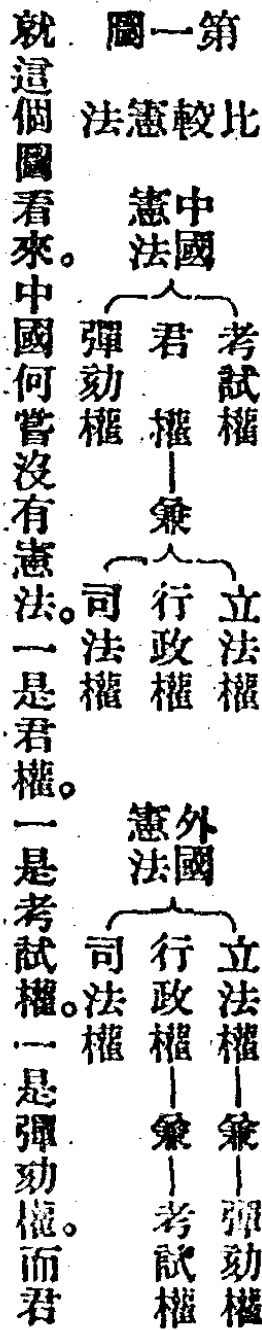 第一圖
比較憲法
中國憲法
考試權
君權—兼
彈劾權
立法權
行政權
司法權
外國憲法
立法權—兼—彈劾權
行政權—兼—考試權
司法權
就這個圖看來。中國何嘗沒有憲法。一是君權。一是考試權。一是彈劾權。而君